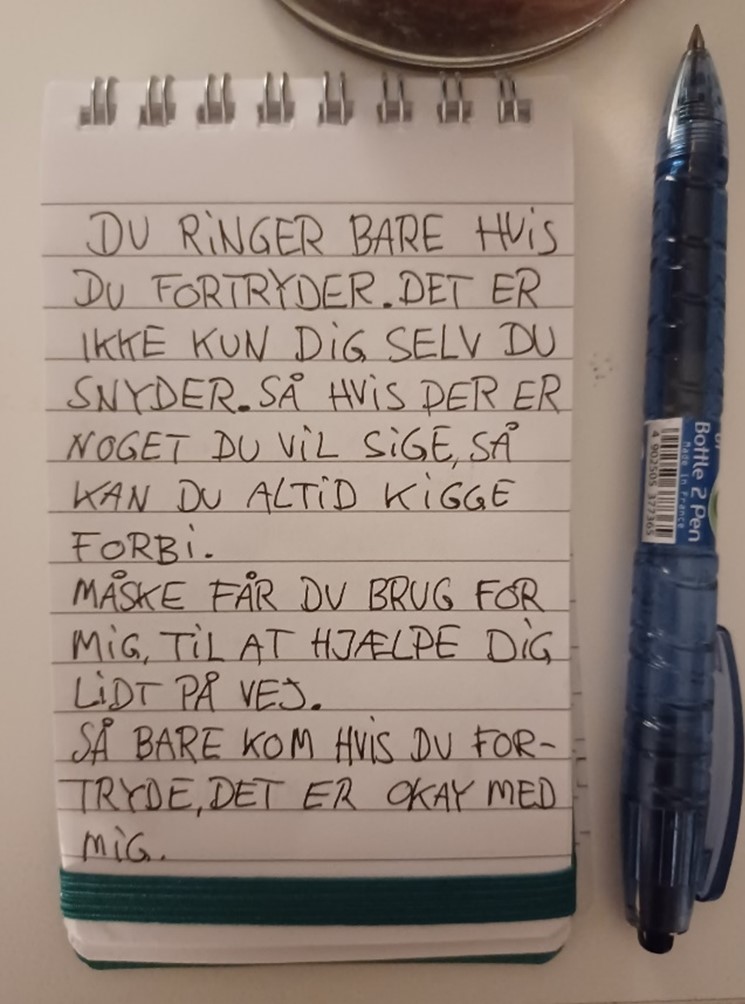 DU RINGER BARE HVIS
DU FORTRYDER. DET ER
IKKE KUN DIG SELV DU
SNYDER. SÅ HVIS DER ER
NOGET DU VIL SIGE, SÅ
KAN DU ALTID KIGGE
FORBI.
MÅSKE FÅR DU BRUG FOR
MIG, TIL AT HJÆLPE DIG
LIDT PÅ VEJ.
SÅ BARE KOM HVIS DU FOR-
TRYDE, DET ER OKAY MED
MIG.
Bottle 2 Pen
Made in France
4 902505 377365